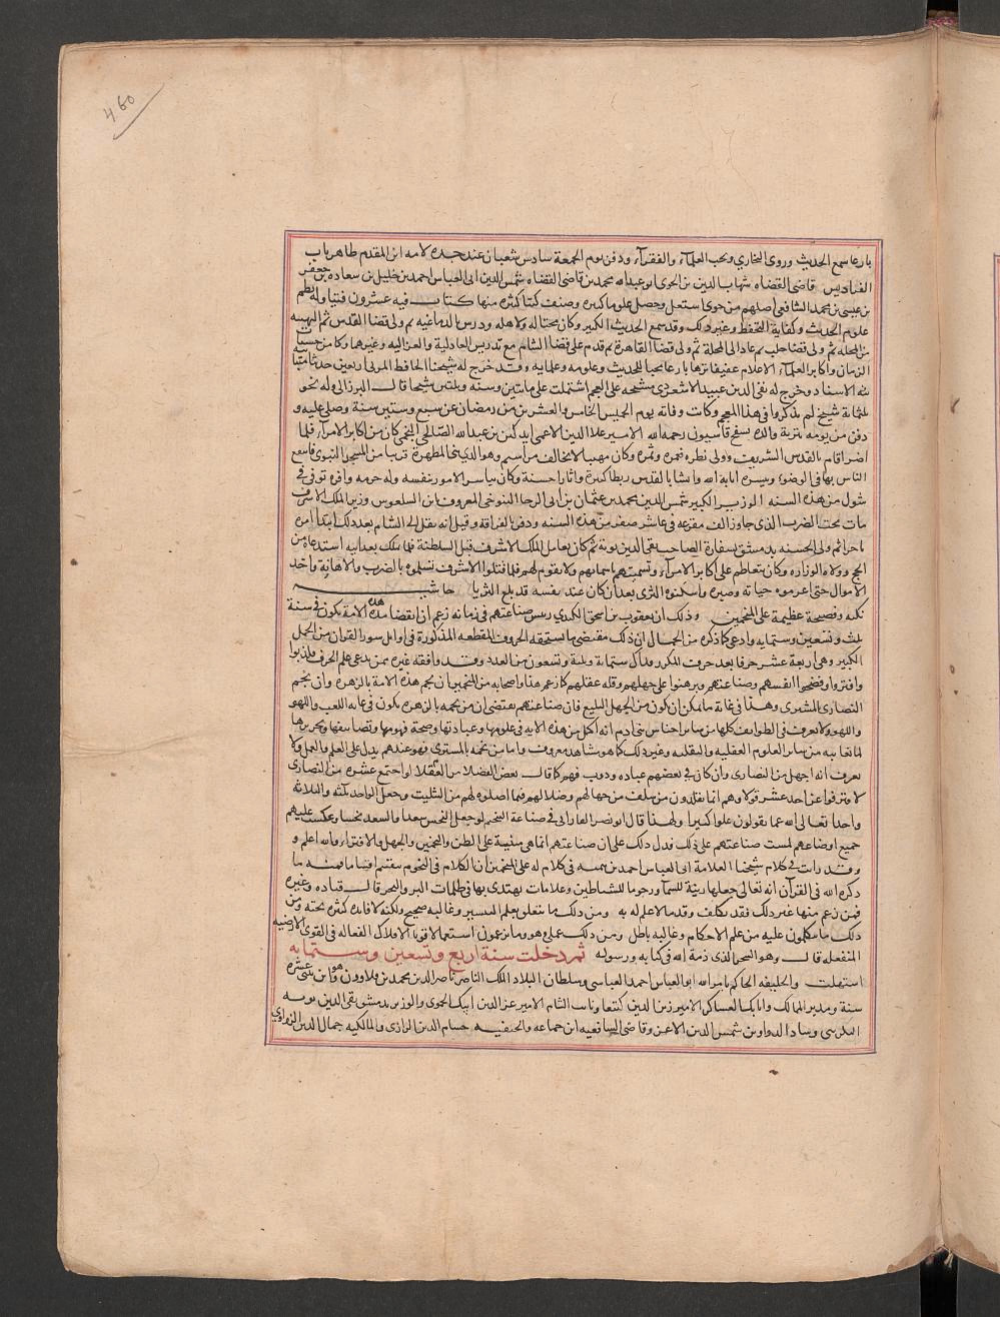 460
بارعا سمع الحديث وروى البخاري ويحب العلماء والفقراء ودفن يوم الجمعة سادس شعبان عند جده لامه ابن المقدم ظاهر باب
الفراديس قاضي القضاه شهاب الدين بن الخوى ابو عبد الله محمد بن قاضي القضاه شمس الدين ابي العباس احمد بن خليل بن سعاده بن جعفر
بن عيسى بن محمد الشافعي اصلهم من خوى اشتغل وحصل علوما كثيره وصنف كتبا كثيره منها كتاب فيه عشرون فنا وله نظم
علوم الحديث وكفاية المتحفظ وغير ذلك وقد سمع الحديث الكثير وكان محبا له ولاهله ودرس بالدماغيه ثم ولى قضا القدس ثم البهنسه
من المحله ثم ولى قضا حلب ثم عاد الى المحلة ثم ولى قضا القاهرة ثم قدم على قضا الشام مع تدريس العادلية والغزاليه وغيرهما وكان من حسنات
الزمان واكابر العلماء الاعلام عفيفا نزها بارعا محبا للحديث وعلومه وعلمايه وقد خرج له شيخنا الحافظ المزى اربعين حديثا متباينة
الاسناد وخرج له تقى الدين عبيد الاشعردى مشيخه على المعجم اشتملت على مايتين وسته وثلثين شيخا قال البرزالى وله نحو
ثلثماية شيخ لم يذكروا في هذا المعجم وكانت وفاته يوم الخميس الخامس والعشرين من رمضان عن سبع وستين سنة وصلى عليه و
دفن من يومه بتربة والده بسفح قاسيون رحمه الله الامير علا الدين الاعمى ايدكين بن عبد الله الصالحى النجمى كان من اكابر الامرآء فلما
اضر اقام بالقدس الشريف وولى نظره فعمره وثمره وكان مهيبا لا تخالف مراسيمه وهو الذي بنى المطهرة قريبا من المسجد النبوى فانتفع
الناس بها في الوضوء وغيره اثابه الله وانشا بالقدس ربطا كثيرة واثارا حسنة وكان يباشر الامور بنفسه وله حرمه وافره توفى فى
شوال من هذه السنه الوزير الكبير شمس الدين محمد بن عثمان بن ابى الرجا التنوخى المعروف بابن السلعوس وزير الملك الاشرف
مات تحت الضرب الذى جاوز الف مقرعه فى عاشر صفر من هذه السنه ودفن بالقرافه وقيل انه نقل الى الشام بعد ذلك ابتدا امره
تاجرا ثم ولى الحسبه بدمشق بسفارة الصاحب تقى الدين توبة ثم كان يعامل الملك الاشرف قبل السلطنة فلما ملك بعد ابيه استدعاه من
الحج وولاه الوزاره وكان يتعاظم على اكابر الامرآء ويسميهم باسمائهم ولا يقوم لهم فلما قتلوا الاشرف تسلموه بالضرب والاهانة واخذ
الاموال حتى اعدموه حياته وصبروه واسكنوه الثرى بعد ان كان عند نفسه قد بلغ الثريا حاشيـــــه
نكته وفضيحة عظيمة على المنجمين وذلك ان يعقوب بن اسحق الكندى رييس صناعتهم فى زمانه زعم ان انقضا مدة هذه الامة يكون فى سنة
ثلث وتسعين وستمايه وادعى كما ذكره من الجهال ان ذلك مقتضى الحروف المقطعه المذكورة فى اوايل سور القرآن من الجمل
الكبير وهى اربعة عشر حرفا بعد حذف المكرر وذاك ستماية وثلثة وتسعون من العدد وقد وافقه غيره ممن يدعى علم الحرف فكذبوا
وافتروا وفضحوا انفسهم وصناعتهم وبرهنوا على جهلهم وقله عقلهم كما زعم هذا واصحابه من المنجمين ان نجم هذه الامة بالزهره وان نجم
النصارى المشترى وهذا فى غاية ما يمكن ان يكون من الجهل البليغ فان صناعتهم تقتضى ان من نجمه بالزهره يكون فى غايه اللعب واللهو
واللهو ولا يعرف فى الطوايف كلها من ساير اجناس بنى ادم امه اكمل من هذه الامه فى علومها وعبادتها وصحة فهومها وتصانيفها وتحريرها
لما تعانيه من ساير العلوم العقليه والنقليه وغير ذلك كما هو مشاهد معروف واما من نجمه بالمشترى فهو عندهم يدل على العلم والعمل ولا
نعرف امه اجهل من النصارى وان كان فى بعضهم عباده ودين فهو كما قال بعض الفضلا من العقلا لو اجتمع عشره من النصارى
لافترقوا عن احد عشر قولا وهم انما يقلدون من سلف من جهالهم وضلالهم فيما اصلوه لهم من التثليث وجعل الواحد ثلثه والثلاثة
واحدا تعالى الله عما يقولون علوا كبيرا ولهذا قال ابو نصر الفارابى فى صناعة النجم لو جعل النحس سعدا والسعد نحسا وعكست عليهم
جميع اوضاعهم لمست صناعتهم على ذلك فدل ذلك على ان صناعتهم انما هى مبنية على الظن والتخمين والجهل والافترا والله اعلم و
وقد رايت فى كلام شيخنا العلامة ابى العباس احمد بن تيميه فى كلام له على المنجمين ان الكلام فى النجوم ينقسم اقساما فمنه ما
ذكره الله فى القرآن انه تعالى جعلها زينة للسمآء ورجوما للشياطين وعلامات يهتدى بها فى ظلمات البر والبحر قال قتاده وغيره
فمن زعم منها غير ذلك فقد تكلف وقد ما لا علم له به ومن ذلك ما يتعلق بعلم التسيير وغالبه صحيح ولكنه لا فايده كثيرة تحته ومن
ذلك ما يتكلمون عليه من علم الاحكام وغالبه باطل ومن ذلك عملى وهو ما يزعمون استعمالا قوى الافلاك الفعاله فى القوى الارضيه
المنفعله قال وهو السحر الذى ذمه الله فى كتابه ورسوله ثم دخلت سنة اربع وتسعين وستمايه
استهلت والخليفه الحاكم بامر الله ابو العباس احمد العباسى وسلطان البلاد الملك الناصر ناصر الدين محمد بن قلاوون وهو ابن ثنتى عشره
سنة ومدبر الممالك واتابك العساكر الامير زين الدين كتبغا ونايب الشام الامير عز الدين ايبك الحموى والوزير بدمشق تقى الدين توبه
التكريتى وشاد الدواوين شمس الدين الاعسر وقاضى الشافعيه ابن جماعه والحنفيه حسام الدين الرازى والمالكيه جمال الدين الزواوى